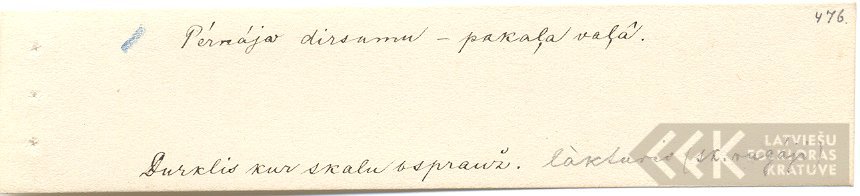 476.
Pērnāja dirsumu – pakaļa vaļâ.
Durklis kur skalu ospraudž. làkturis (sk. ragaji)
LATVIEŠU
FOLKLORAS
KRĀTUVE